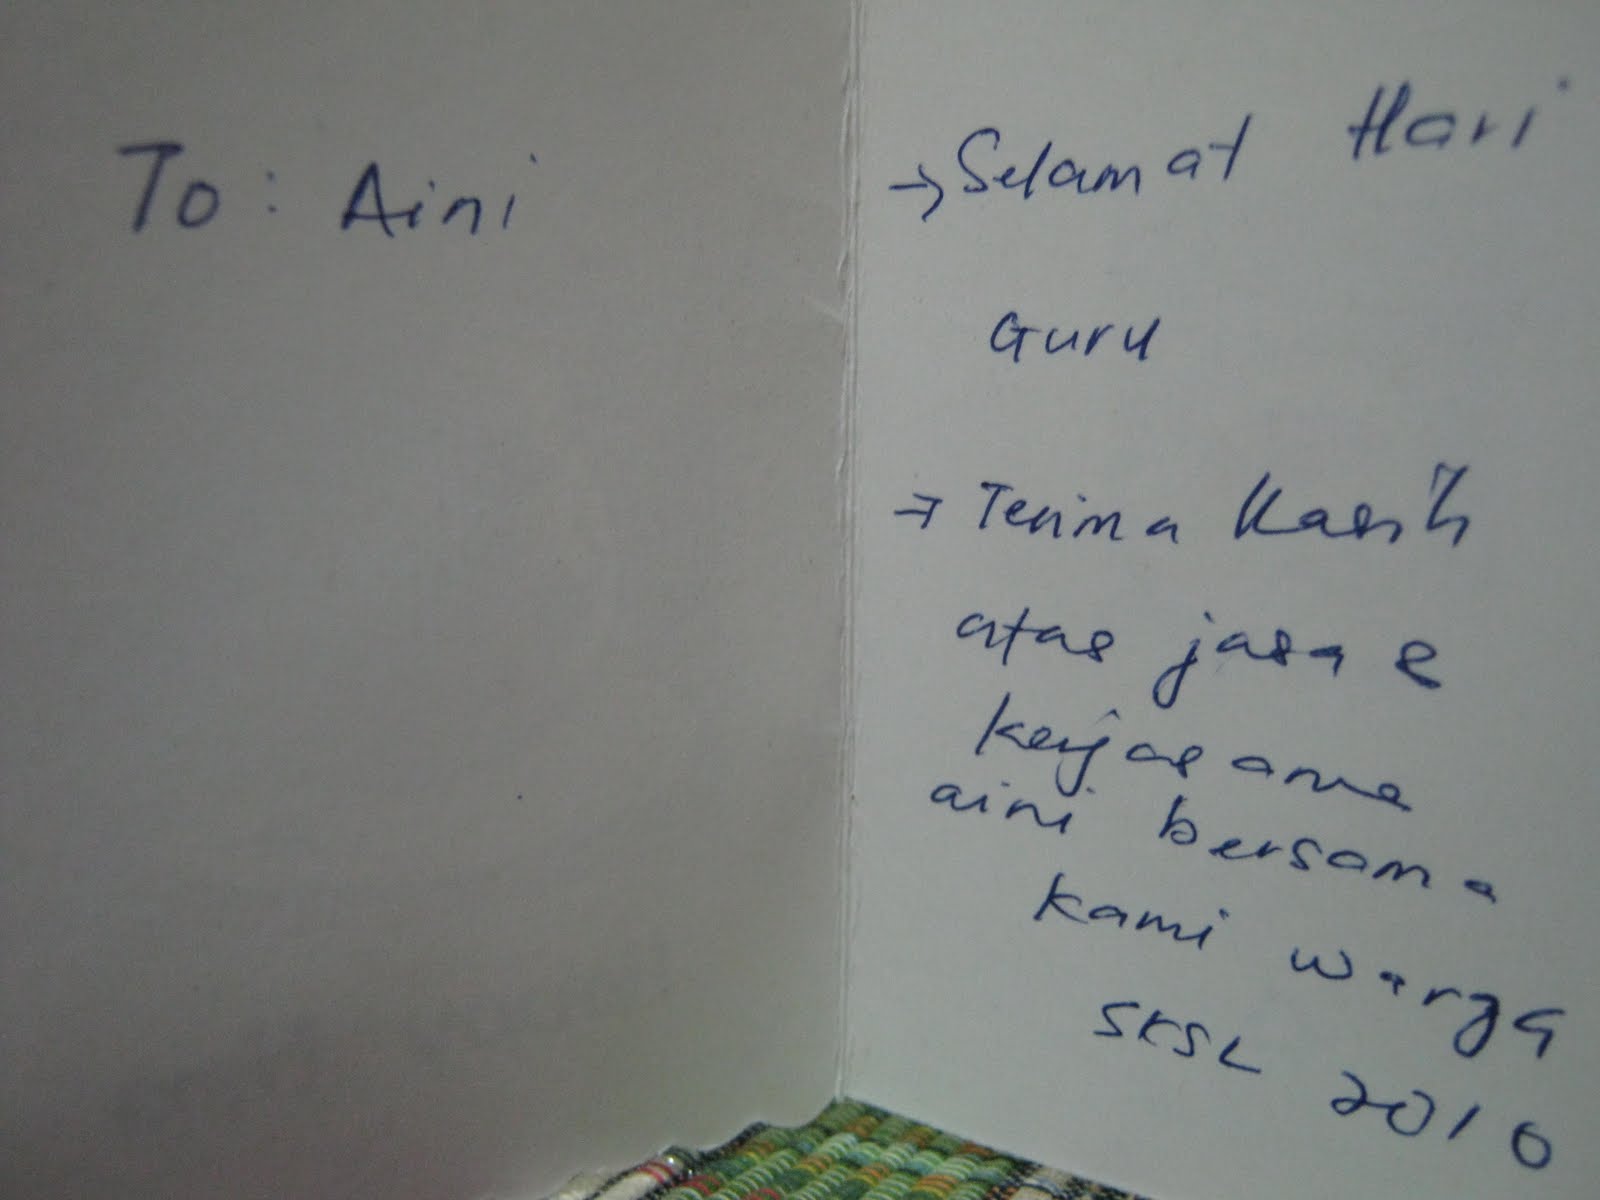 To: Aini
→ Selamat Hari
Guru
→ Terima Kasih
atas jasa &
kerjasama
aini bersama
kami warga
SKSL 2010